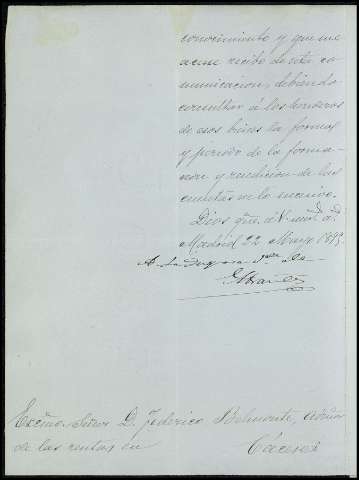 conocimiento y que me
acuse recibo de esta co
municacion, debiendo
consultar á los herederos
de esos bienes la forma
y periodo de la forma-
cion y rendicion de las
cuentas en lo sucesivo.
Dios gue. á V. muchs. as.
Madrid 22 Marzo 1895
Excmo. Señor D. Federico Belmonte, Admor
de las rentas en Cáceres